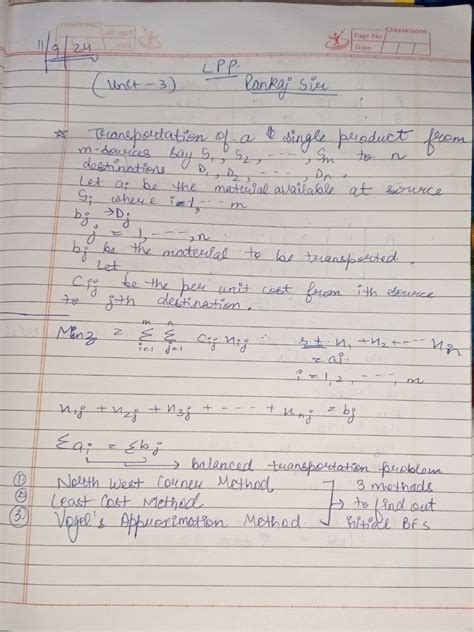 Classroom
Page No.
Date
11/9/24
LPP
(Unit-3) Pankaj Sir
* Transportation of a single product from
m-sources say S1, S2, ----, Sm to n
destinations D1, D2, ----, Dn.
Let ai be the material available at source
Si where i=1, --- m
bj → Dj
j = 1, ---, n
bj be the material to be transported.
Let
Cij be the per unit cost from ith source
to jth destination.
Min z = m∑i=1 n∑j=1 Cij nij s.t. n1 + n2 + --- nin
= ai
i = 1, 2, ---, m
n1j + n2j + n3j + ---- + nnj = bj
∑ai = ∑bj
→ balanced transportation problem
① North West Corner Method ] 3 methods
② Least Cost Method. → to find out
③ Vogel's Approximation Method initial BFS